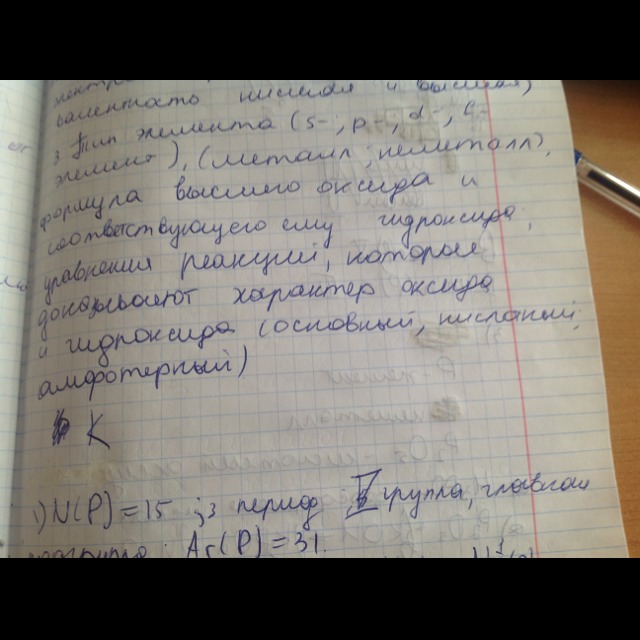 валентность низшая и высшая)
3 Тип элемента (s-, p-, d-, f-
элемент), (металл, неметалл),
формула высшего оксида и
соответствующего ему гидроксида,
уравнения реакций, которые
доказывают характер оксида
и гидроксида (основный, кислотный,
амфотерный)
K
1) N(P)=15 ; 3 период V группа, главная
подгруппа; Ar(P)=31.